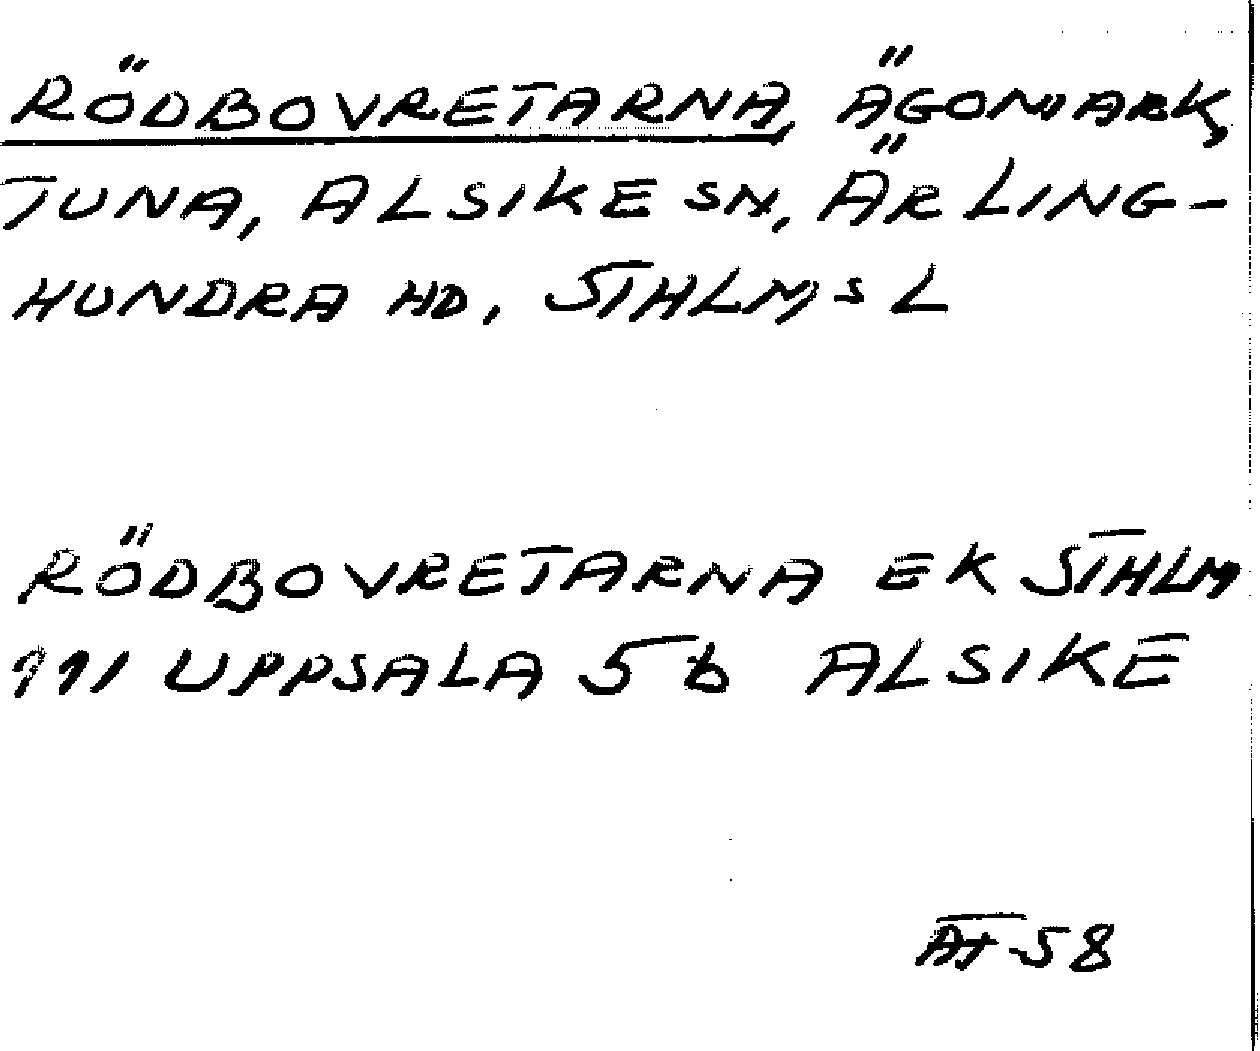 RÖDBOVRETARNA, ÄGOMARK,
TUNA, ALSIKE SN, ÄRLING-
HUNDRA HD, STHLMS L
RÖDBOVRETARNA EK STHLM
111 UPPSALA 5 b ALSIKE
AT-58